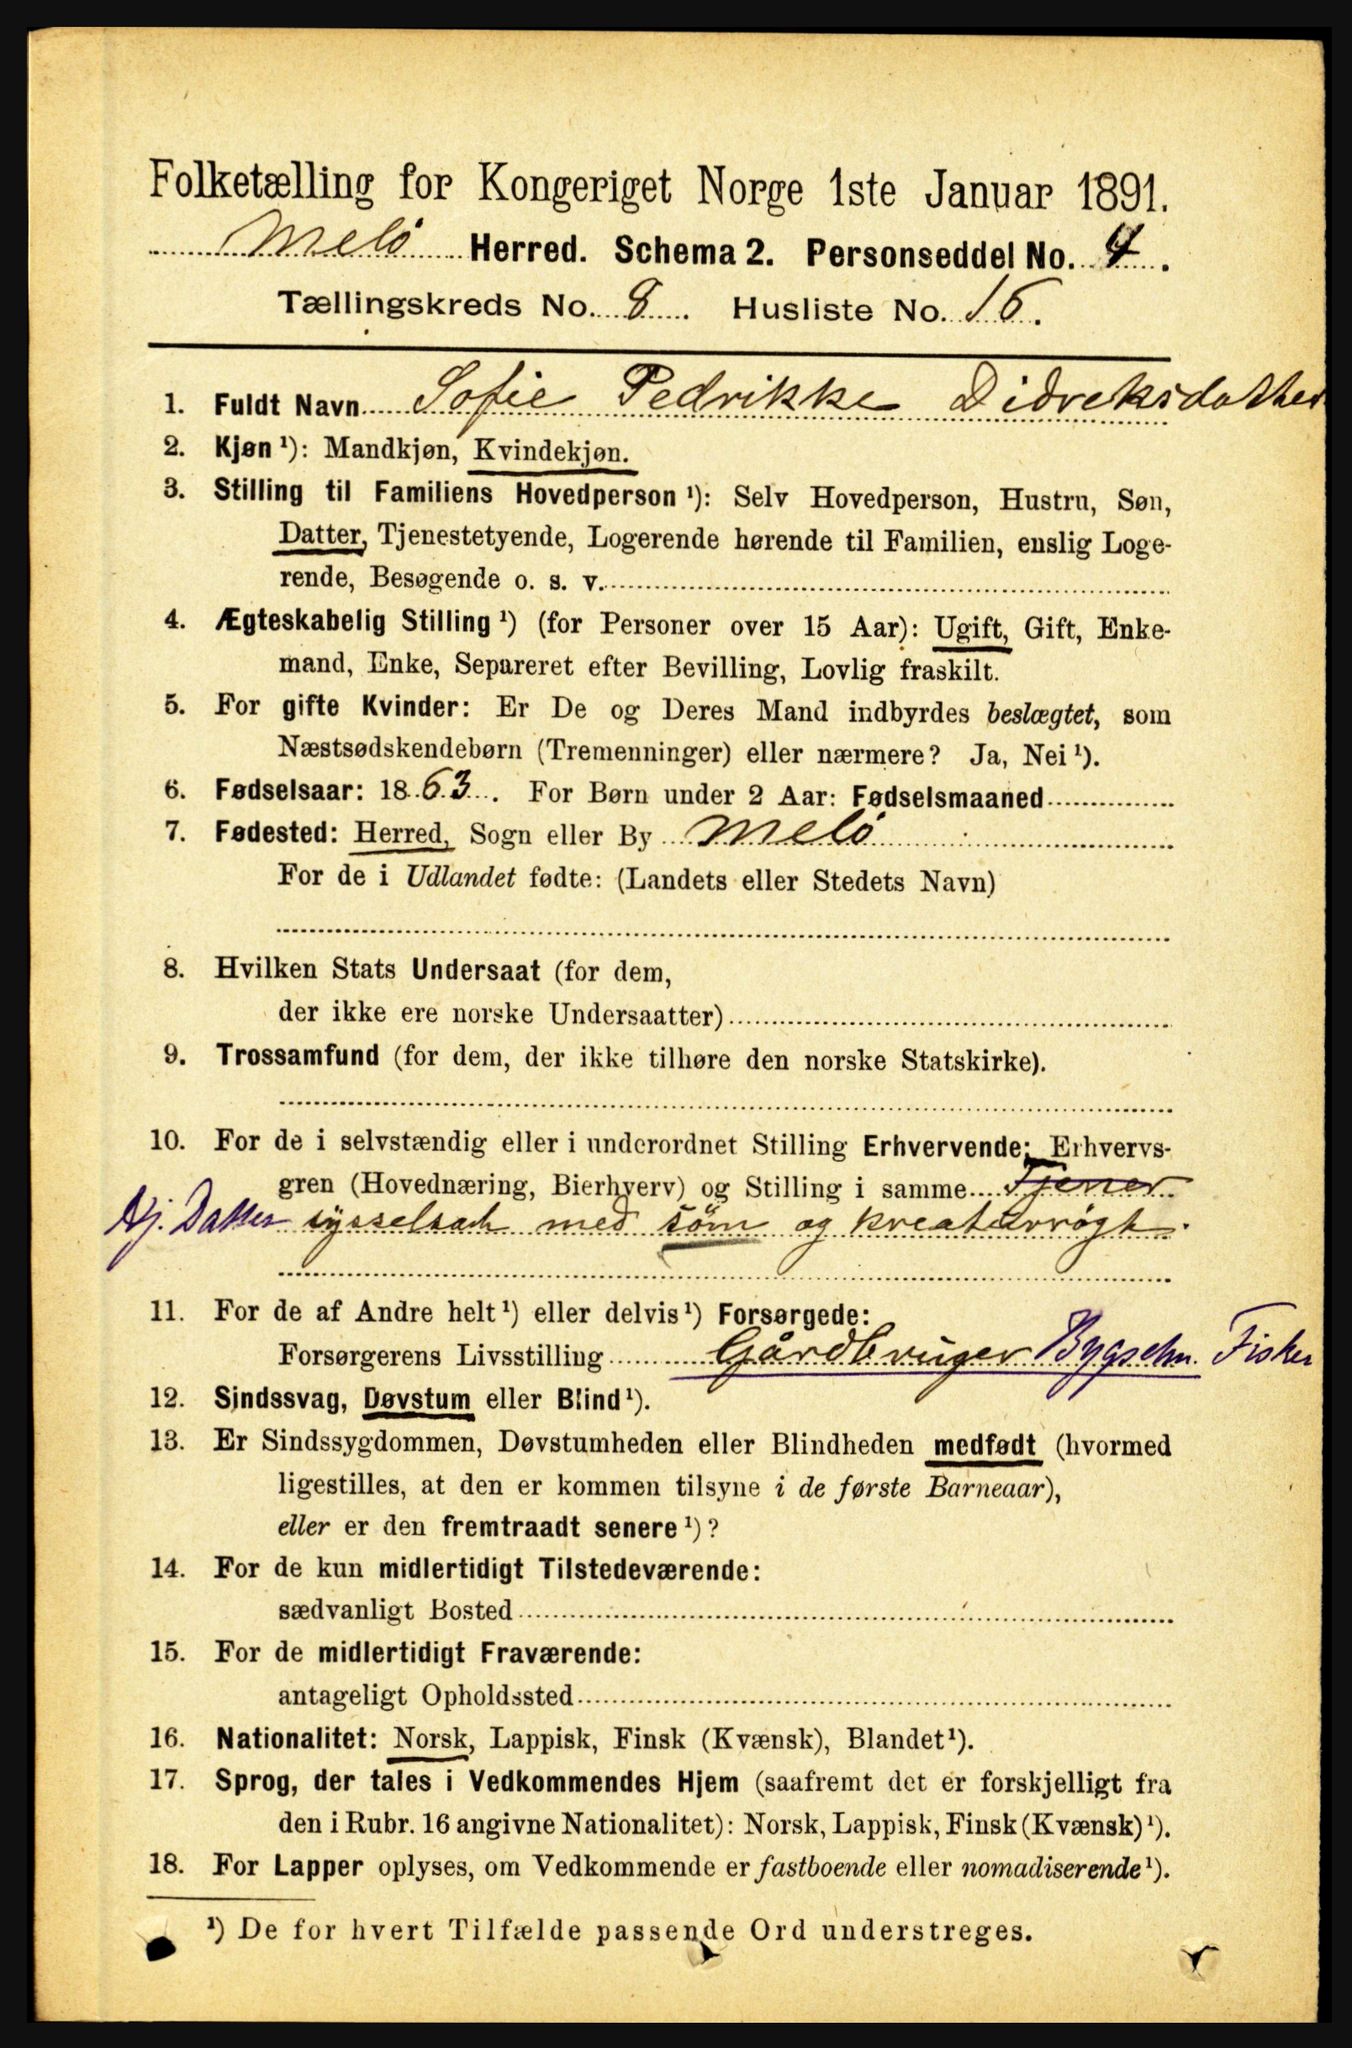 Folketælling for Kongeriget Norge 1ste Januar 1891.
Melö Herred. Schema 2. Personseddel No. 4.
Tællingskreds No. 8. Husliste No. 16.
1. Fuldt Navn Sofie Pedrikke Didreksdatter
2. Kjøn ¹): Mandkjøn, Kvindekjøn.
3. Stilling til Familiens Hovedperson ¹): Selv Hovedperson, Hustru, Søn,
Datter, Tjenestetyende, Logerende hørende til Familien, enslig Loge-
rende, Besøgende o. s. v.
4. Ægteskabelig Stilling ¹) (for Personer over 15 Aar): Ugift, Gift, Enke-
mand, Enke, Separeret efter Bevilling, Lovlig fraskilt.
5. For gifte Kvinder: Er De og Deres Mand indbyrdes beslægtet, som
Næstsødskendebørn (Tremenninger) eller nærmere? Ja, Nei ¹).
6. Fødselsaar: 1863. For Børn under 2 Aar: Fødselsmaaned
7. Fødested: Herred, Sogn eller By Melö
For de i Udlandet fødte: (Landets eller Stedets Navn)
8. Hvilken Stats Undersaat (for dem,
der ikke ere norske Undersaatter)
9. Trossamfund (for dem, der ikke tilhøre den norske Statskirke).
10. For de i selvstændig eller i underordnet Stilling Erhvervende: Erhvervs-
gren (Hovednæring, Bierhverv) og Stilling i samme Tjener
Hj. Datter sysselsach med söm og kreaturrögt.
11. For de af Andre helt ¹) eller delvis ¹) Forsørgede:
Forsørgerens Livsstilling Gårdbruger Bygselm. Fisker
12. Sindssvag, Døvstum eller Blind ¹).
13. Er Sindssygdommen, Døvstumheden eller Blindheden medfødt (hvormed
ligestilles, at den er kommen tilsyne i de første Barneaar),
eller er den fremtraadt senere ¹)?
14. For de kun midlertidigt Tilstedeværende:
sædvanligt Bosted
15. For de midlertidigt Fraværende:
antageligt Opholdssted
16. Nationalitet: Norsk, Lappisk, Finsk (Kvænsk), Blandet ¹).
17. Sprog, der tales i Vedkommendes Hjem (saafremt det er forskjelligt fra
den i Rubr. 16 angivne Nationalitet): Norsk, Lappisk, Finsk (Kvænsk) ¹).
18. For Lapper oplyses, om Vedkommende er fastboende eller nomadiserende ¹).
¹) De for hvert Tilfælde passende Ord understreges.